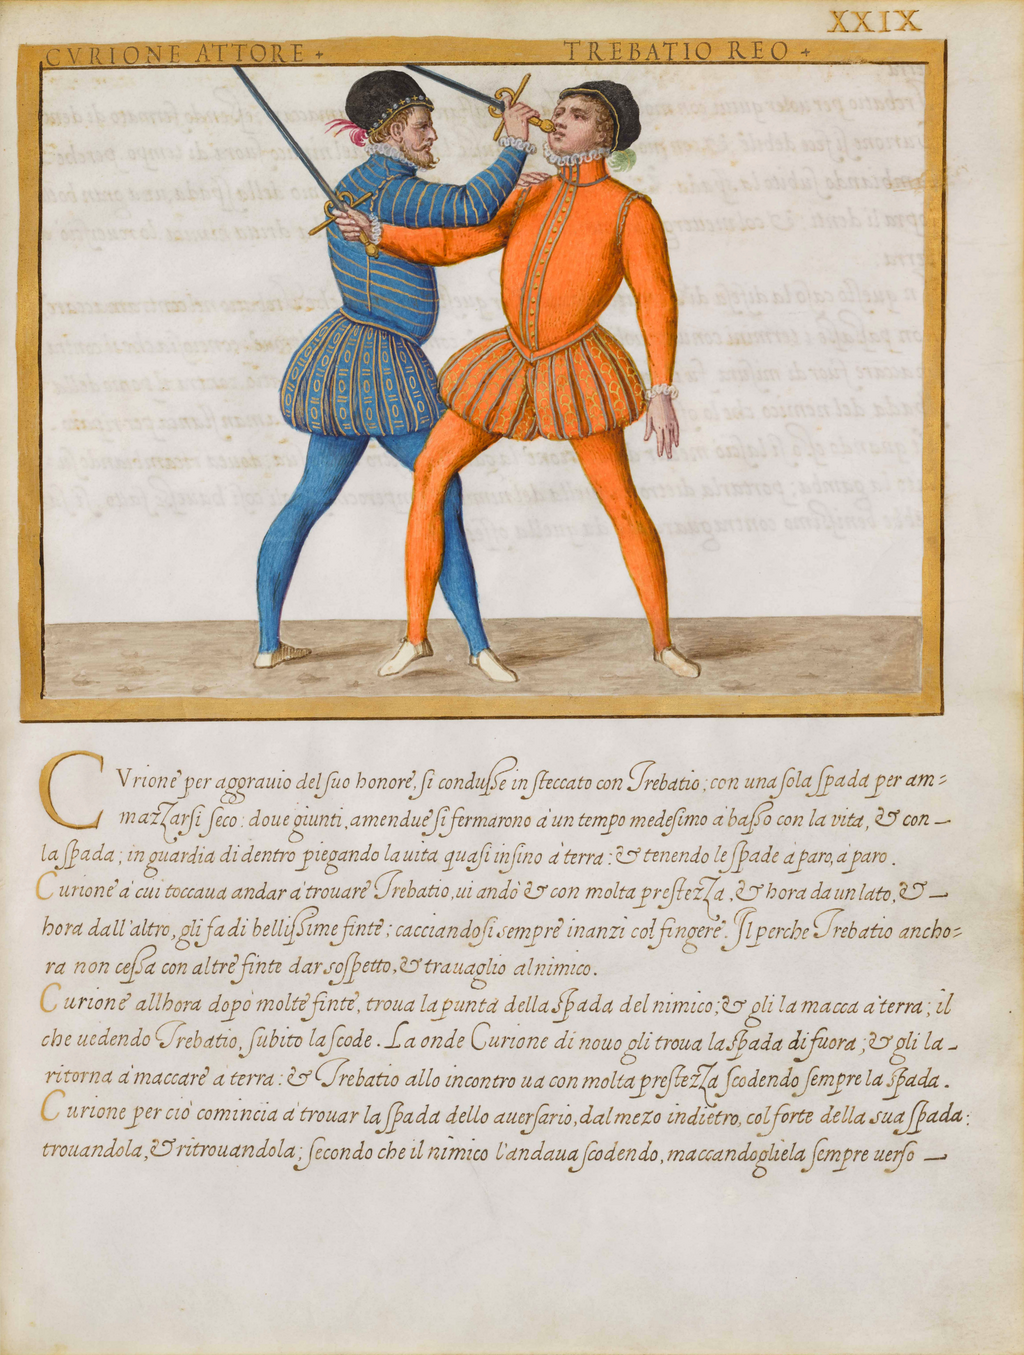 XXIX
CVRIONE ATTORE +
TREBATIO REO +
CVrione per aggrauio del suo honore, si condusse in steccato con Trebatio; con una sola spada per am=
mazzarsi seco: doue giunti, amendue si fermarono à un tempo medesimo à basso con la vita, & con —
la spada; in guardia di dentro piegando la uita quasi insino à terra: & tenendo le spade à paro, à paro.
Curione à cui toccaua andar à trouare Trebatio, ui andò & con molta prestezza, & hora da un lato, & —
hora dall'altro, gli fa di bellissime finte; cacciandosi sempre inanzi col fingere. Il perche Trebatio ancho=
ra non cessa con altre finte dar sospetto, & trauaglio al nimico.
Curione allhora dopò molte finte, troua la punta della spada del nimico; & gli la macca à terra; il
che uedendo Trebatio, subito la scode. La onde Curione di nouo gli troua la spada di fuora; & gli la -
ritorna à maccare à terra: & Trebatio allo incontro ua con molta prestezza scodendo sempre la spada.
Curione per ciò comincia à trouar la spada dello auersario, dal mezo indietro, col forte della sua spada;
trouandola, & ritrouandola; secondo che il nimico l'andaua scodendo, maccandogliela sempre uerso —